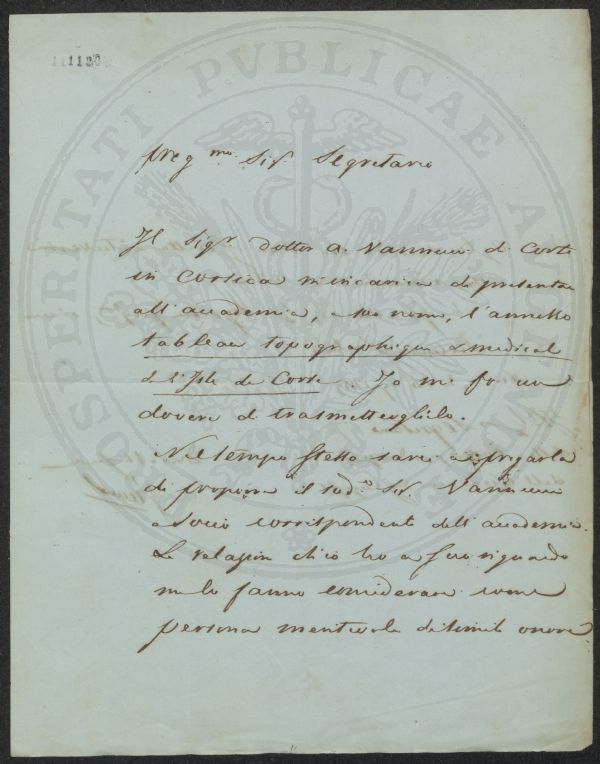 111120
PROSPERITATI PUBLICAE AUGENDAE
Preg.mo Sig. Segretario
Il Sig.r dottor A. Vannucci di Corte
in Corsica m'incarica di presentare
all'accademia, suo nome, l'annesso
tableau topographique & medical
de l'Isle de Corse Io mi fo un
dovere di trasmetterglielo.
Nel tempo stesso sarei a pregarla
di proporre il sud.o Sig. Vannucci
a Socio corrispondente dell'accademia.
Le relazioni ch'io ho a suo riguardo
me lo fanno considerare come
persona meritevole di simile onore